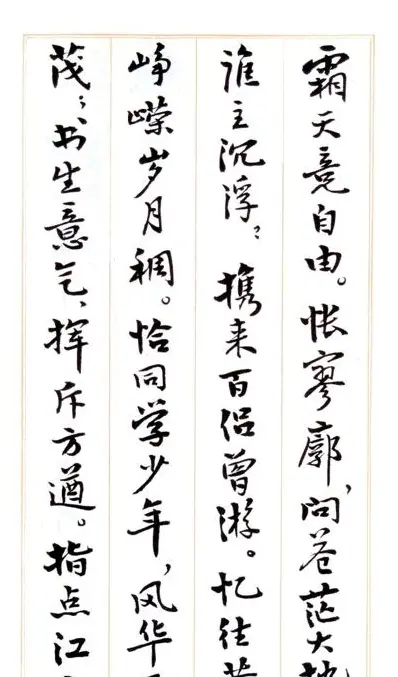 霜天竞自由。怅寥廓，问苍茫大地
谁主沉浮？携来百侣曾游。忆往
峥嵘岁月稠。恰同学少年，风华
茂；书生意气，挥斥方遒。指点江